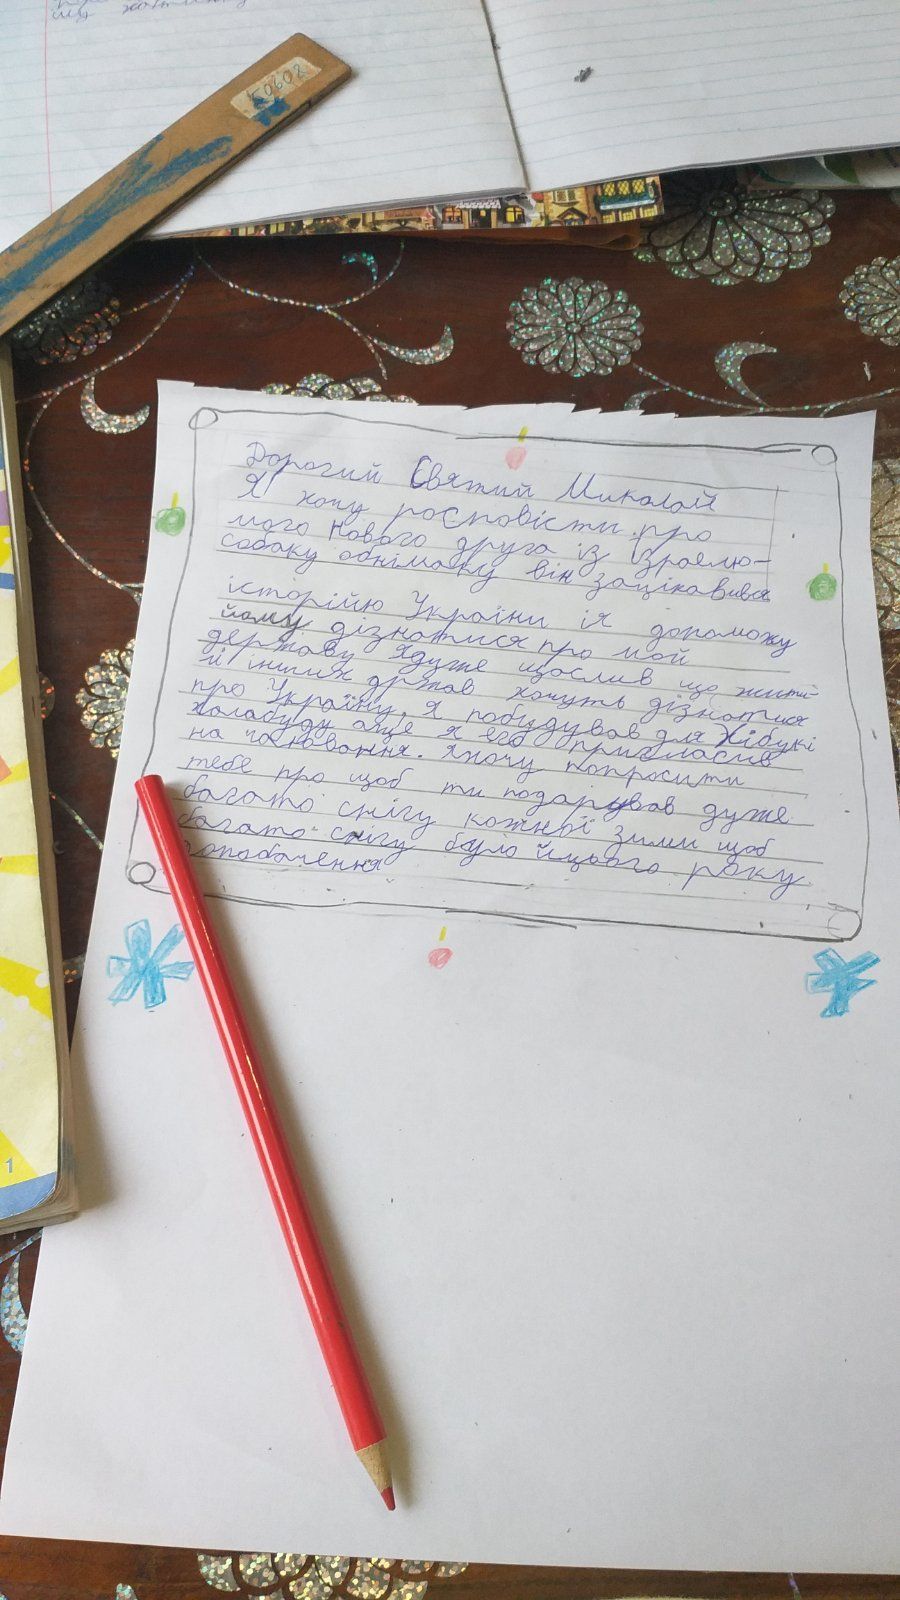 50602
Дорогий Святий Миколай
Я хочу росповісти про
мого нового друга із Ізраелю-
собаку обнімаку він зацікавився
історійю України і я допоможу
йому дізнатися про мой
державу Ядуже щослив що жителі
й інших држав хочуть дізнатися
про Україну, я побудував для Хібукі
халабуду аще я его пригласив
на чаювання. Яхочу попросити
тебе про щоб ти подарував дуже
багато снігу кожної зими щоб
багато снігу було йцього року
допобачення
1